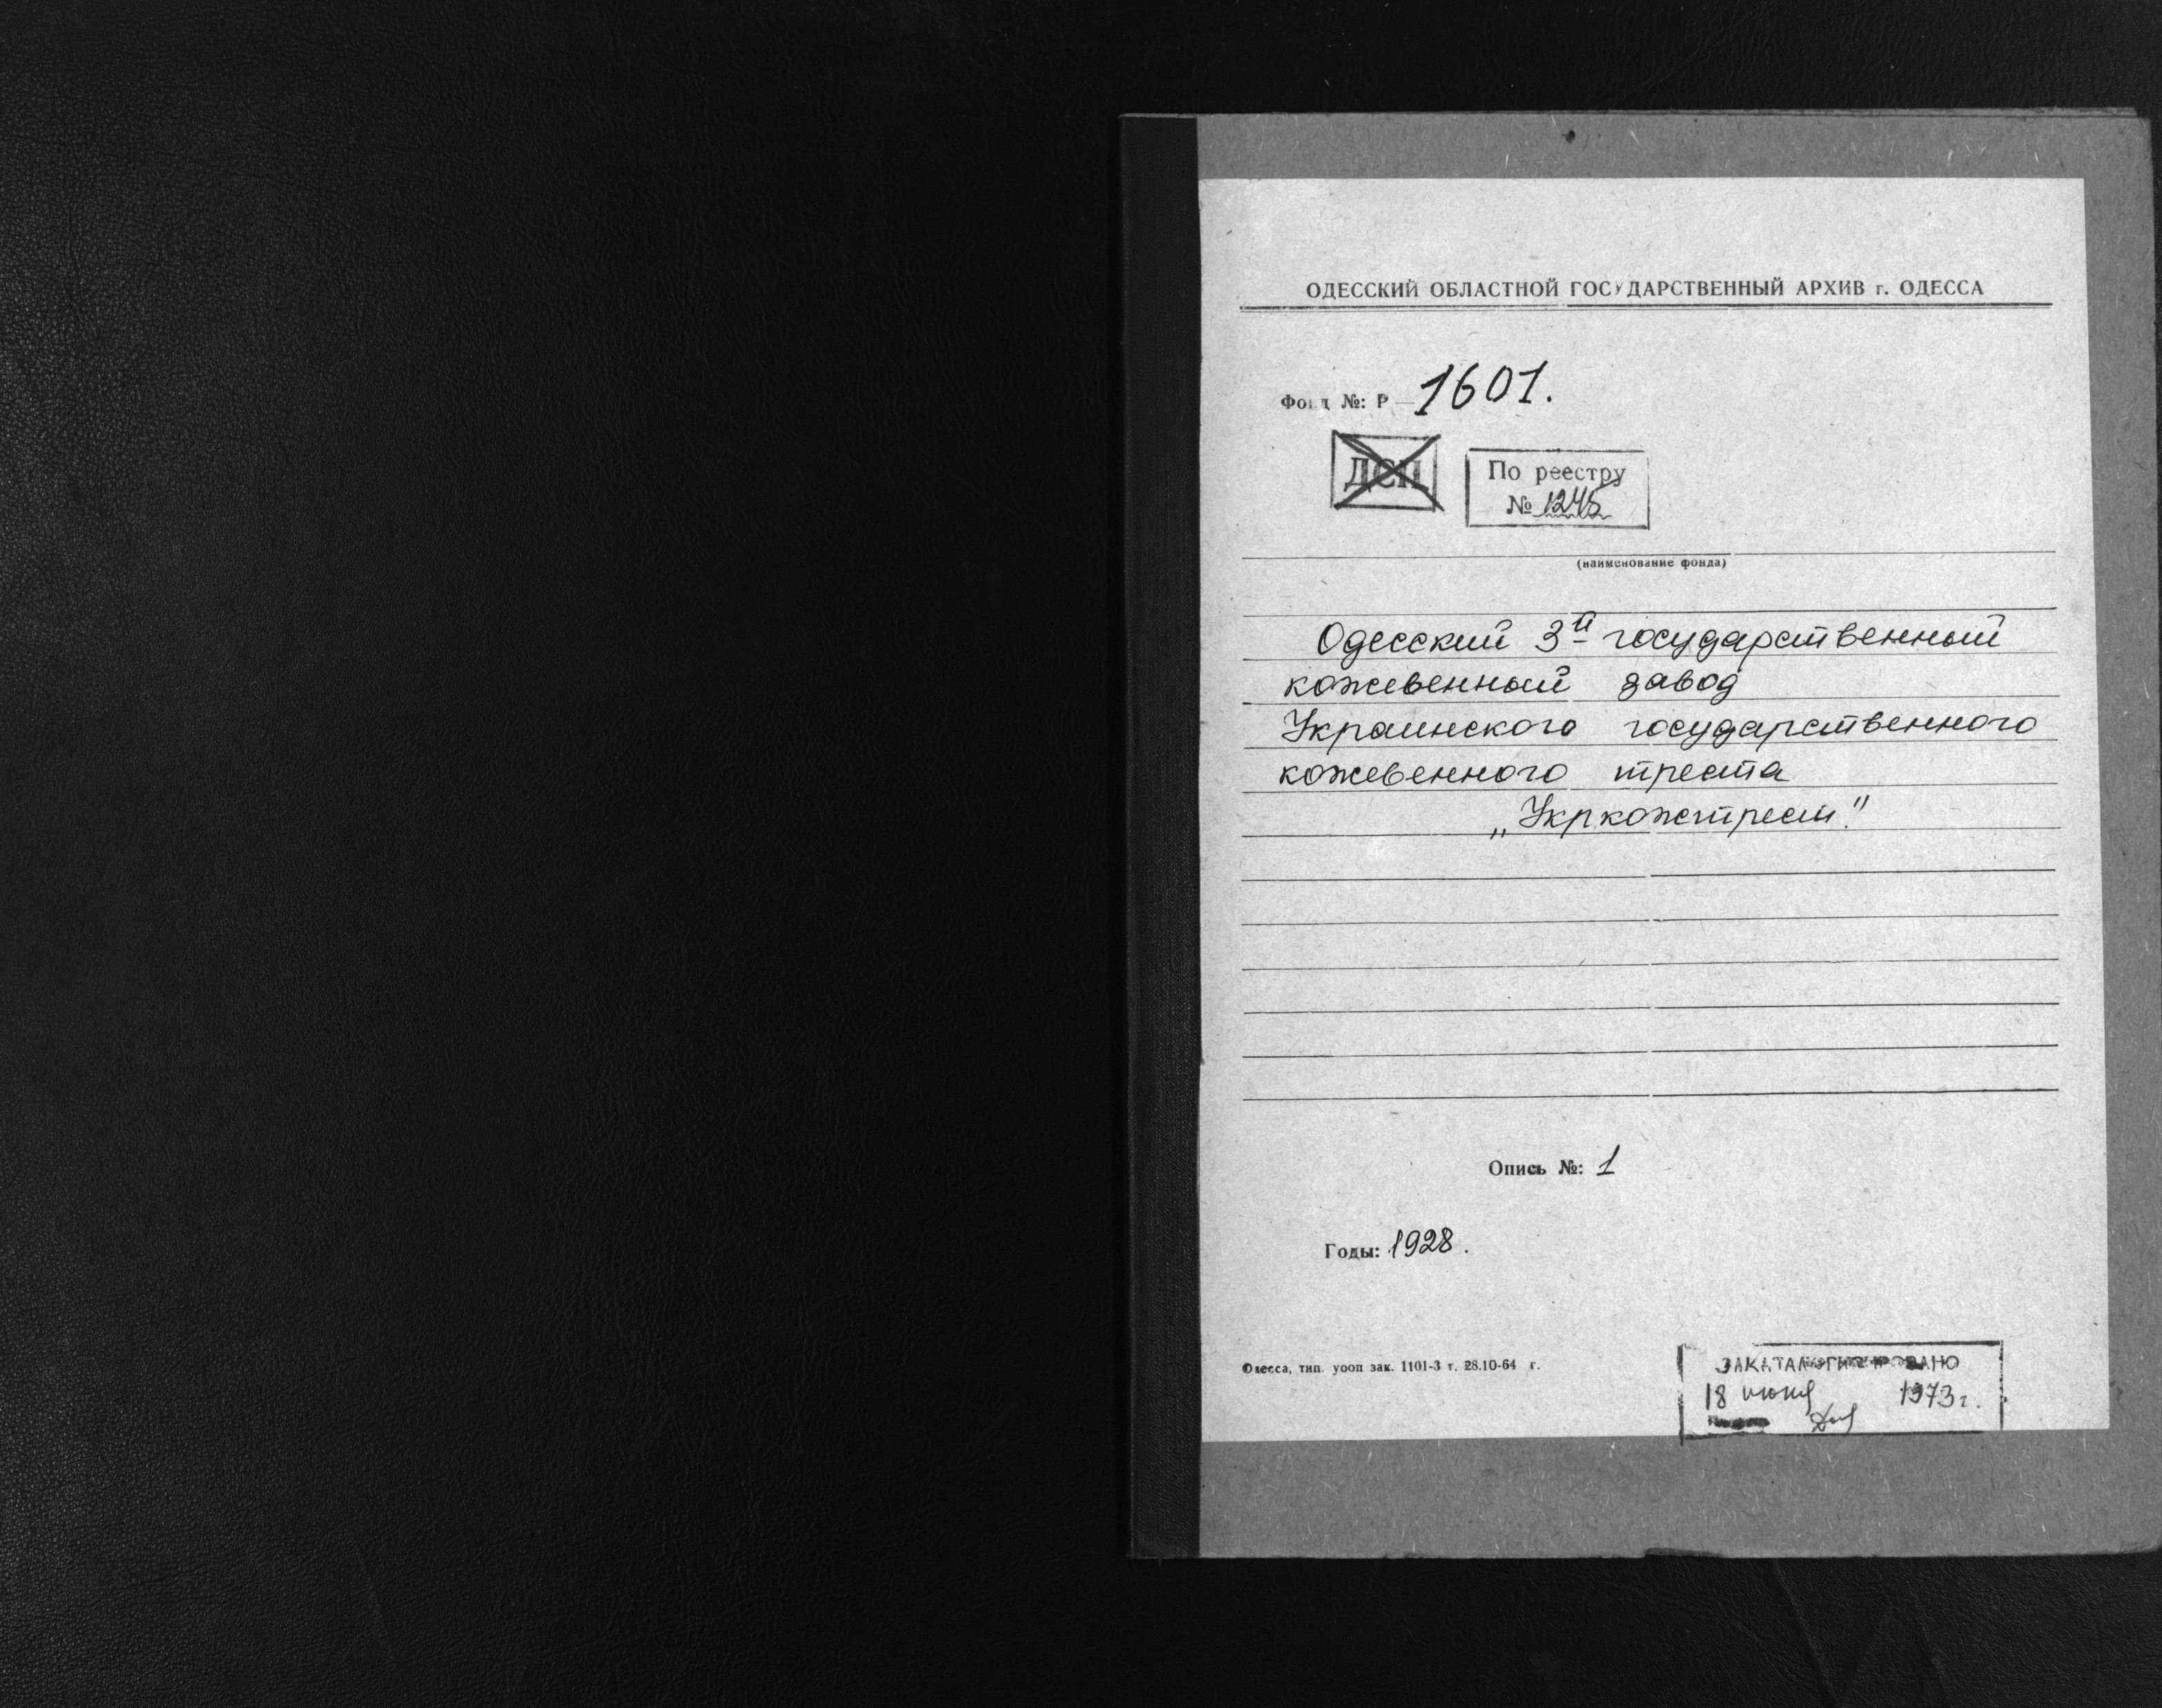 ОДЕССКИЙ ОБЛАСТНОЙ ГОСУДАРСТВЕННЫЙ АРХИВ г. ОДЕССА
Фонд №: Р — 1601.
ДСП
По реестру
№ 1245
(наименование фонда)
Одесский 3й государственный
кожевенный завод
Украинского государственного
кожевенного треста
„Укркожтрест."
Опись №: 1
Годы: 1928.
Одесса, тип. уооп зак. 1101-3 т. 28.10-64 г.
ЗАКАТАЛОГИЗИРОВАНО
18 июня 1973 г.